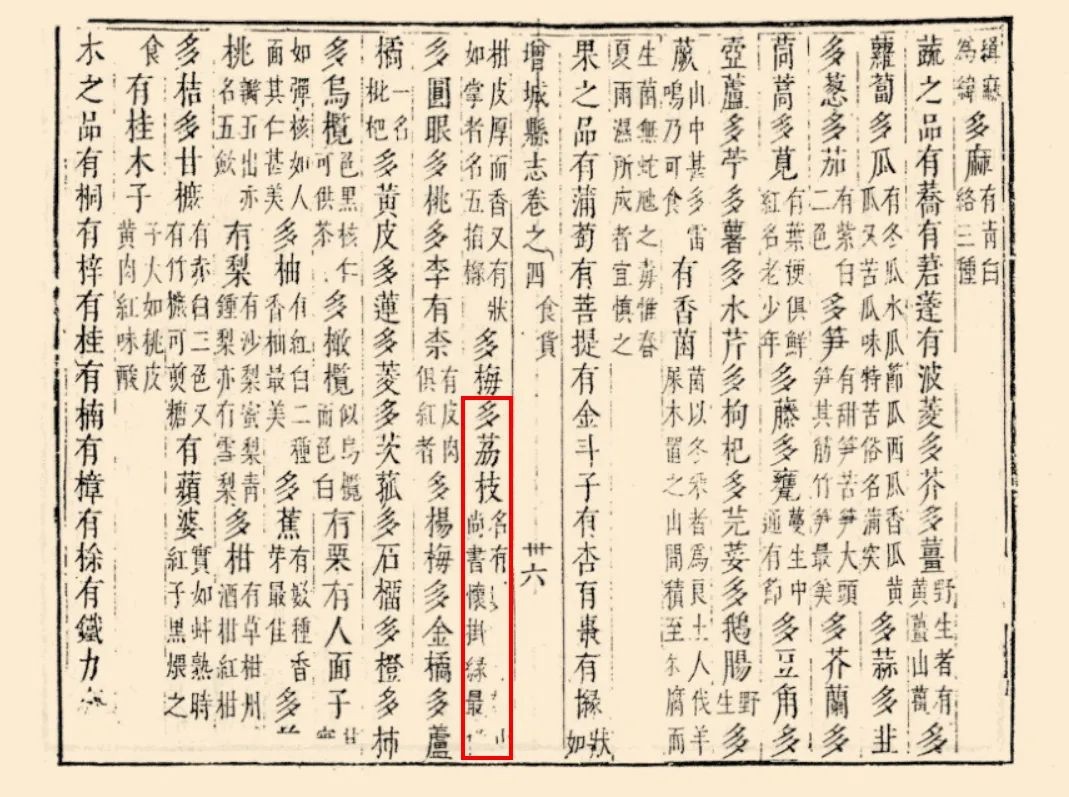 多麻有青白絡三種
蔬之品有蕎有莙蓬有波菱多芥多薑野生者有黃薑山薑多
蘿蔔多瓜有冬瓜水瓜節瓜西瓜香瓜黃瓜又苦瓜味特苦俗名蒲突多蒜多韭
多葱多茄有紫白二色多笋有甜笋苦笋大頭笋其筋竹笋最美多芥蘭多
茼蒿多莧有葉梗俱鮮紅名老少年多藤多甕蔓生中通有節多豆角多
壺蘆多苧多薯多水芹多枸杞多芫荽多鵝腸野生多
蕨山中甚多雷鳴乃可食有香菌菌以冬采者為良土人伐羊屎木置之山間積至朽腐而
生菌無蛇虺之毒惟春夏雨濕所成者宜慎之
果之品有蒲萄有菩提有金斗子有杏有棗有櫞狀如
增城縣志卷之四 食貨 卅六
柑皮厚而香又有狀如掌者名五指櫞多梅多荔枝名有尚書懷掛綠最
多圓眼多桃多李有柰有皮肉俱紅者多楊梅多金橘多蘆
橘一名枇杷多黃皮多蓮多菱多茨菰多石榴多橙多柿
多烏欖色黑核仁可供茶多橄欖似烏欖而色白有栗有人面子
如彈核如人面其仁甚美多柚有紅白二種香柚最美多蕉有數種香芽最佳多
桃瓣五出亦名五斂有梨有沙梨蜜梨青鍾梨亦有雪梨多柑有草柑州酒柑紅柑
多桔多甘樜有赤白二色又有竹樜可煎糖有蘋婆實如蚌熟時紅子黑煨之
食有桂木子子大如桃皮黃肉紅味酸
木之品有桐有梓有桂有楠有樟有桗有鐵力